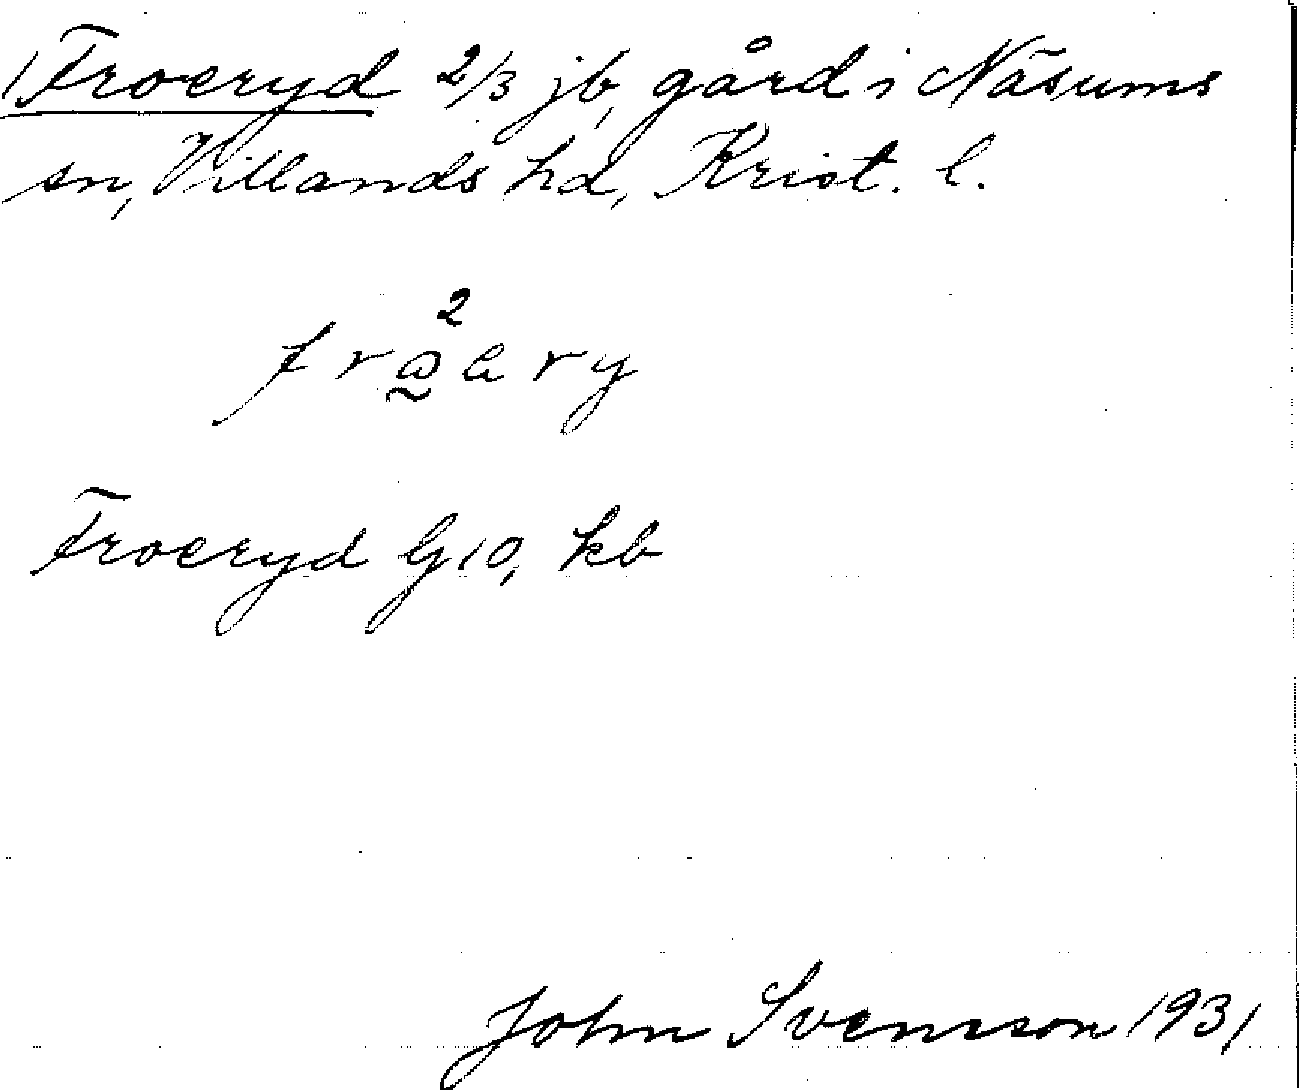 /Froeryd 2/3 jb, gård i Näsums
sn, Villands hd, Krist. l.
2
Froeryd G10, kb
John Svensson 1931